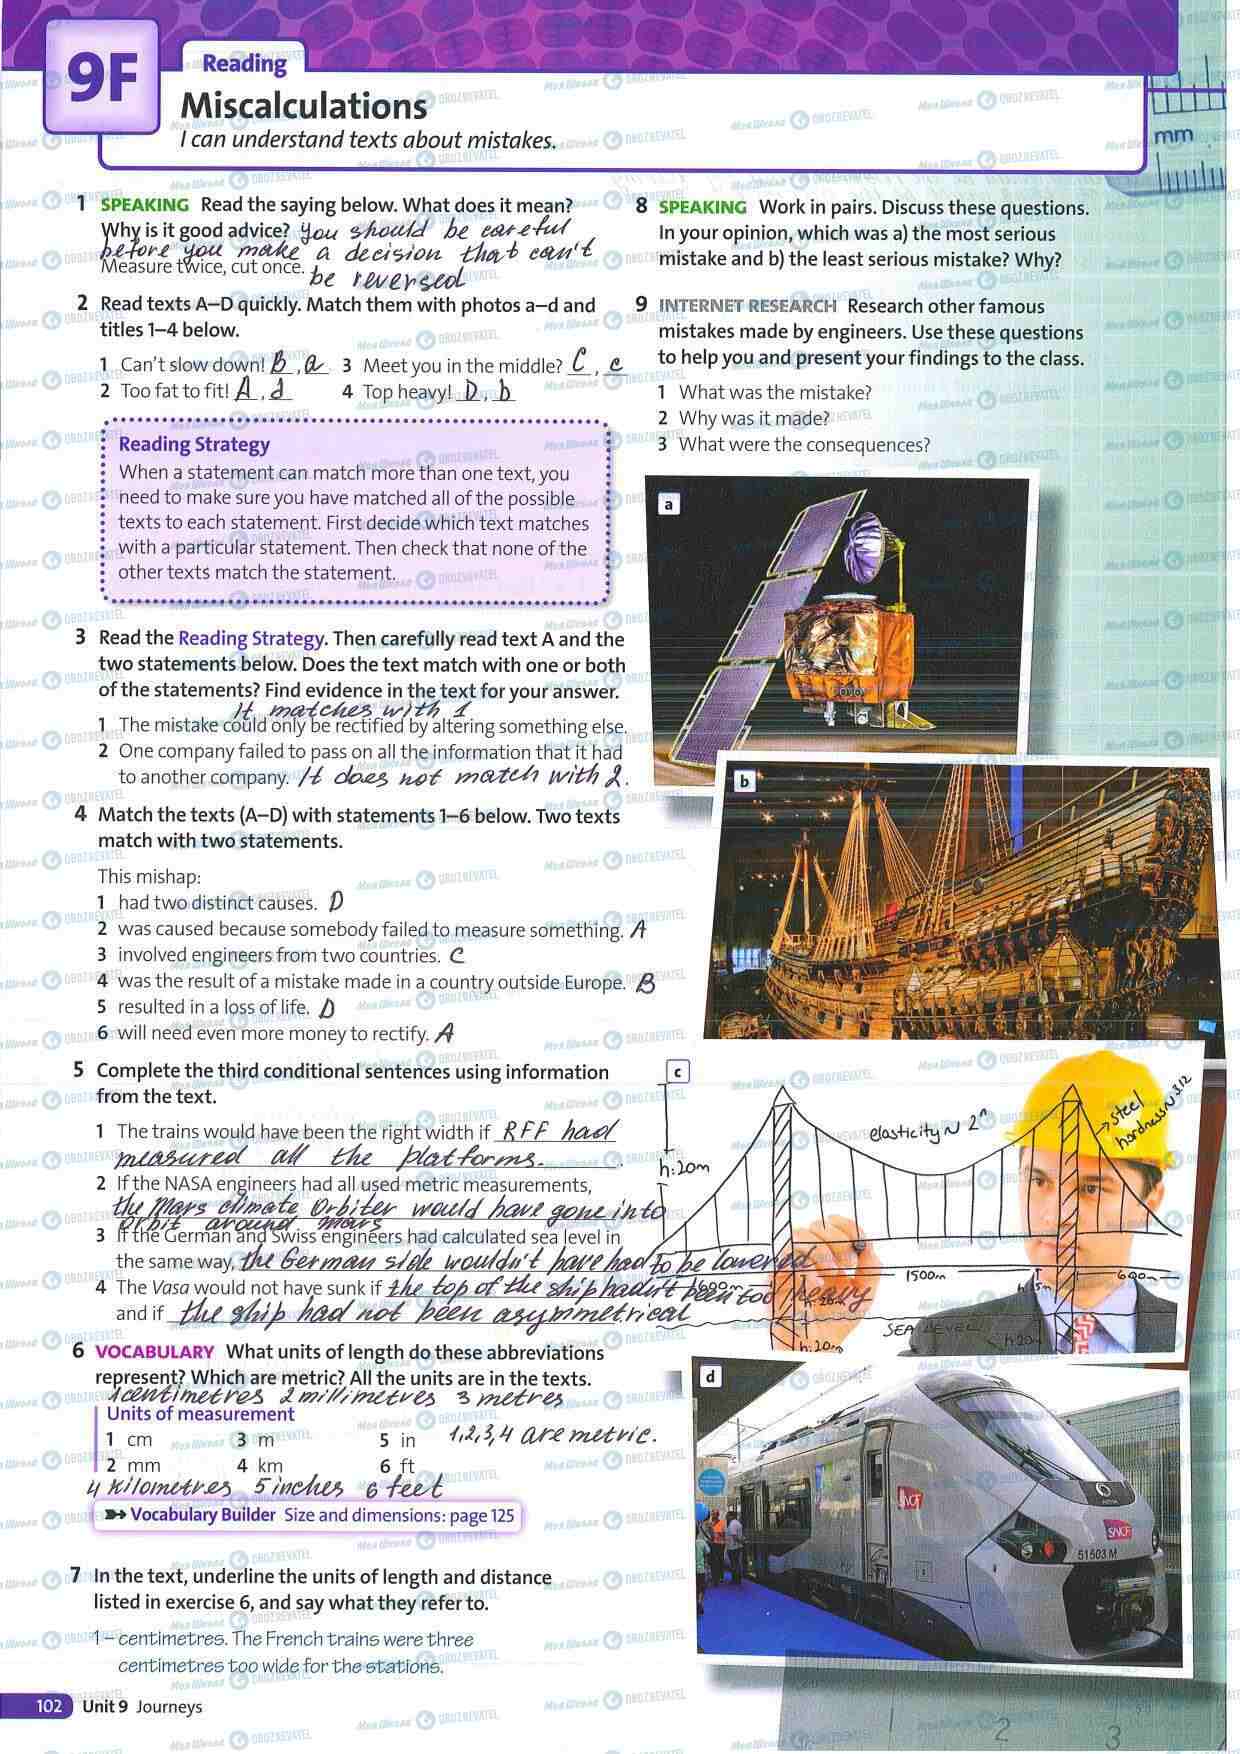 9F
Reading
Miscalculations
I can understand texts about mistakes.
mm
1 SPEAKING Read the saying below. What does it mean?
Why is it good advice? You should be careful
before you make a decision that can't
Measure twice, cut once. be reversed
2 Read texts A–D quickly. Match them with photos a–d and
titles 1–4 below.
1 Can't slow down! B, a 3 Meet you in the middle? C, c
2 Too fat to fit! A, d 4 Top heavy! D, b
Reading Strategy
When a statement can match more than one text, you
need to make sure you have matched all of the possible
texts to each statement. First decide which text matches
with a particular statement. Then check that none of the
other texts match the statement.
3 Read the Reading Strategy. Then carefully read text A and the
two statements below. Does the text match with one or both
of the statements? Find evidence in the text for your answer.
It matches with 1
1 The mistake could only be rectified by altering something else.
2 One company failed to pass on all the information that it had
to another company. It does not match with 2.
4 Match the texts (A–D) with statements 1–6 below. Two texts
match with two statements.
This mishap:
1 had two distinct causes. D
2 was caused because somebody failed to measure something. A
3 involved engineers from two countries. C
4 was the result of a mistake made in a country outside Europe. B
5 resulted in a loss of life. D
6 will need even more money to rectify. A
5 Complete the third conditional sentences using information
from the text.
1 The trains would have been the right width if RFF had
measured all the platforms.
2 If the NASA engineers had all used metric measurements,
the Mars climate Orbiter would have gone into
orbit around mars
3 If the German and Swiss engineers had calculated sea level in
the same way, the German side wouldn't have had to be lowered
4 The Vasa would not have sunk if the top of the ship hadn't been too heavy
and if the ship had not been asymmetrical
6 VOCABULARY What units of length do these abbreviations
represent? Which are metric? All the units are in the texts.
1centimetres 2 millimetres 3 metres
Units of measurement
1 cm 3 m 5 in 1,2,3,4 are metric.
2 mm 4 km 6 ft
4 kilometres 5 inches 6 feet
Vocabulary Builder Size and dimensions: page 125
7 In the text, underline the units of length and distance
listed in exercise 6, and say what they refer to.
1 – centimetres. The French trains were three
centimetres too wide for the stations.
102 Unit 9 Journeys
8 SPEAKING Work in pairs. Discuss these questions.
In your opinion, which was a) the most serious
mistake and b) the least serious mistake? Why?
9 INTERNET RESEARCH Research other famous
mistakes made by engineers. Use these questions
to help you and present your findings to the class.
1 What was the mistake?
2 Why was it made?
3 What were the consequences?
a
b
c
elasticity ~ 2^
steel
hardness ~ 312
h:20m
1600m
1500m
600m
SEA LEVEL
h:20m
h:20m
d
SNCF
SNCF
51503 M
2 3
МОЯ ШКОЛА OBOZREVATEL